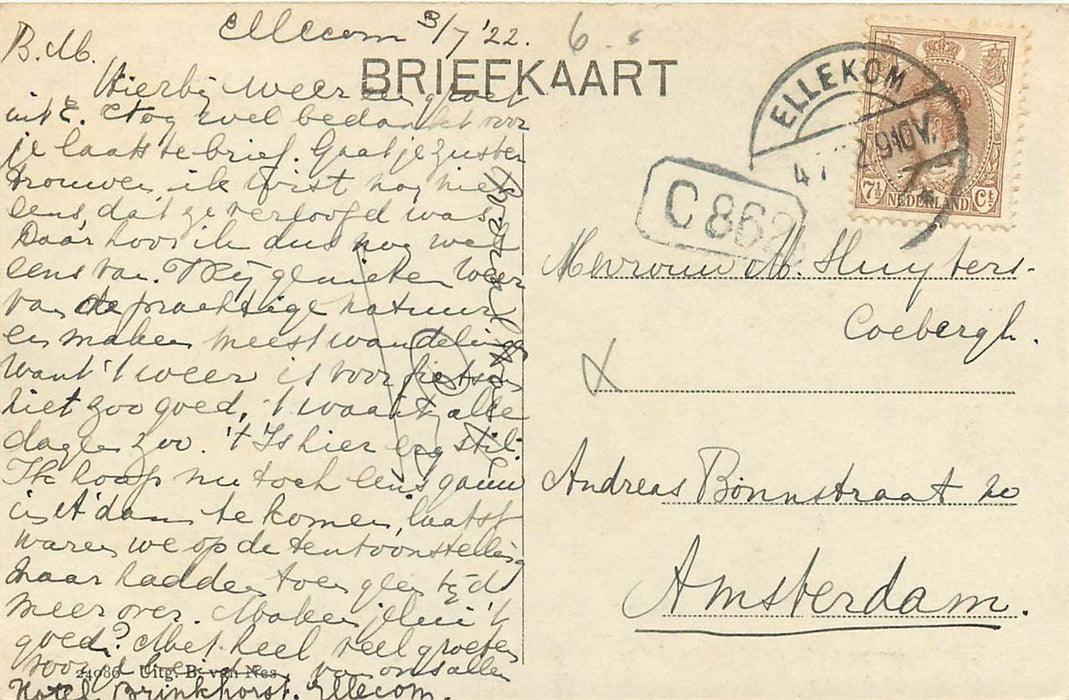 Ellecom 3/7 '22.
6
BRIEFKAART
B. M.
Hierbij weer een groet
uit E. En nog wel bedankt voor
je laatste brief. Gaat je zuster
trouwen, ik wist nog niet
eens, dat ze verloofd was.
Daar hoor ik dus nog wel
eens van. Wij genieten weer
van de prachtige natuur
en maken meest wandelingen
want 't weer is voor fietsen
niet zoo goed, 't waait alle
dagen zoo. 't Is hier erg stil.
Ik hoop nu toch eens gauw
in A'dam te komen, laatst
waren we op de tentoonstelling
maar hadden toen geen tijd
meer over. Maken jelui 't
goed? Met heel veel groeten
voor van ons allen
Hotel Brinkhorst. Ellecom.
24986 Uitg. B. van Nes
ELLEKOM
4 7 22 9-10V.
C 862
7½ NEDERLAND Ct
Mevrouw M. Huyters-
Coebergh.
Andreas Bonnstraat 20
Amsterdam.